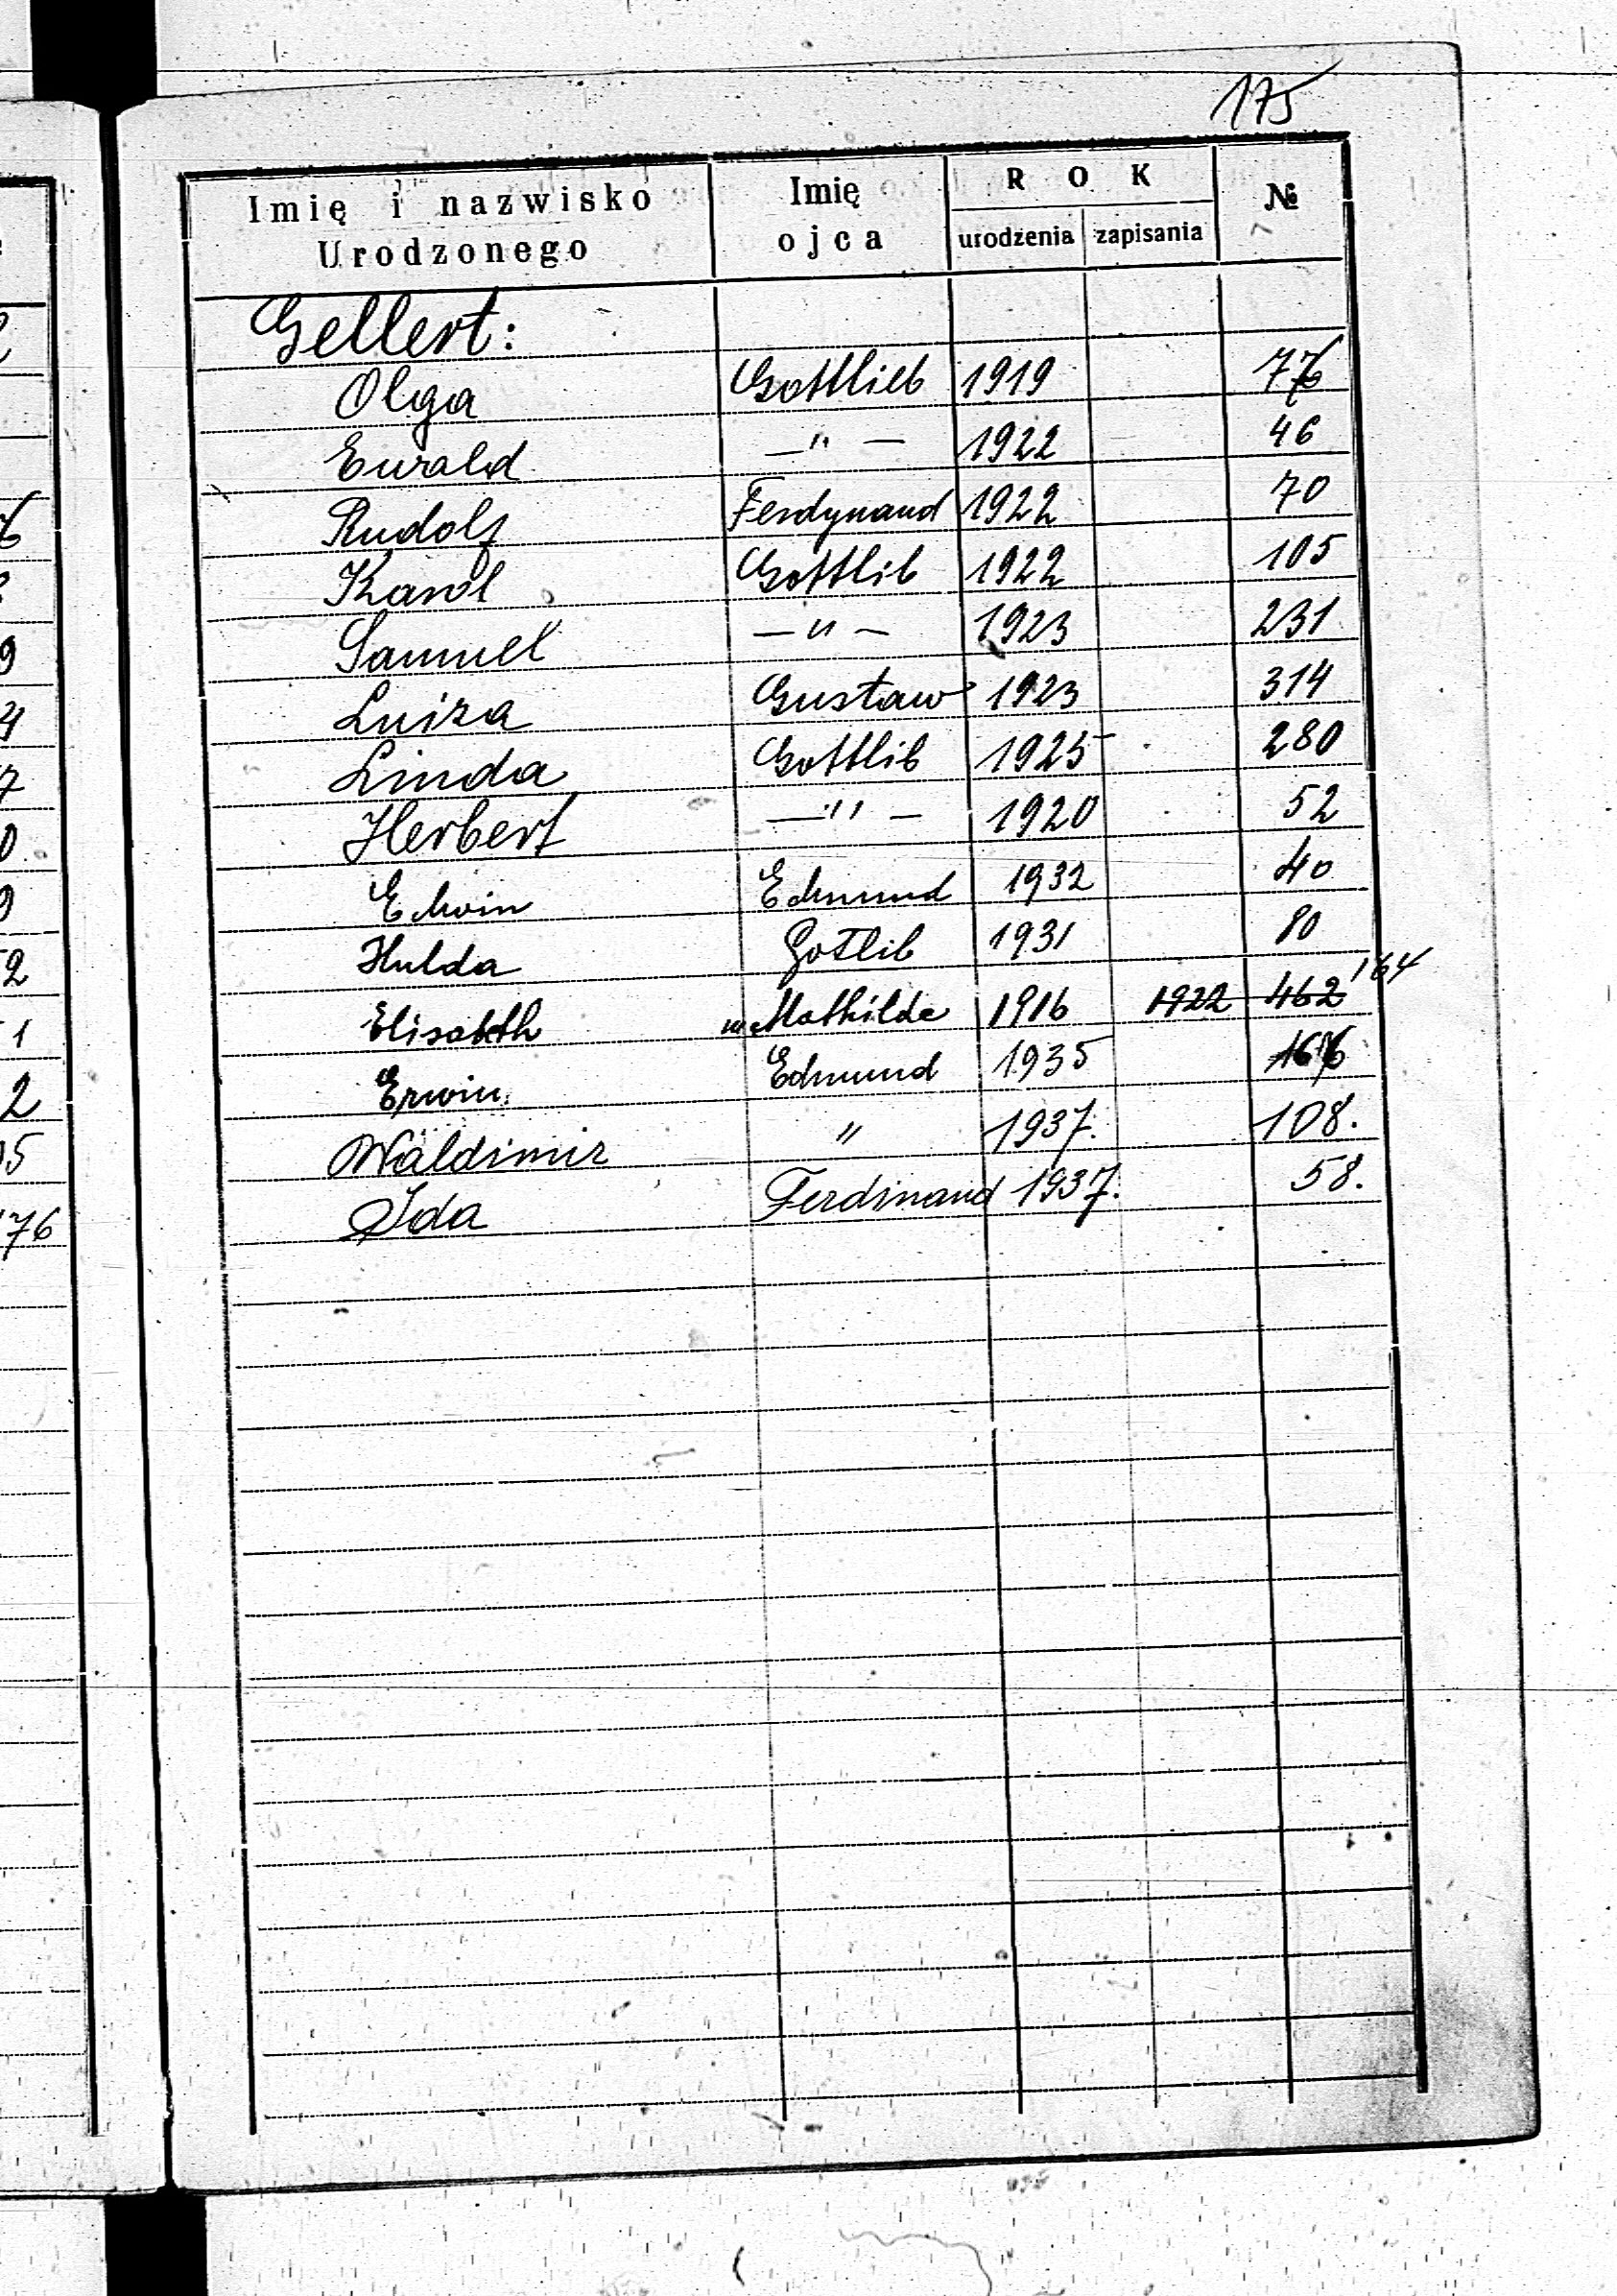 175
Imię i nazwisko Urodzonego | Imię ojca | ROK urodzenia | zapisania | №
Gellert:
Olga Gottlieb 1919 76
Ewald — " — 1922 46
Rudolf Ferdynand 1922 70
Karol Gottlib 1922 105
Samuel — " — 1923 231
Luiza Gustaw 1923 314
Linda Gottlib 1925 280
Herbert — " — 1920 52
Edwin Edmund 1932 40
Hulda Gotlib 1931 80
Elisabeth m. Mathilde 1916 1922 462 164
Erwin Edmund 1935
Waldimir " 1937. 108.
Ida Ferdinand 1937. 58.
76